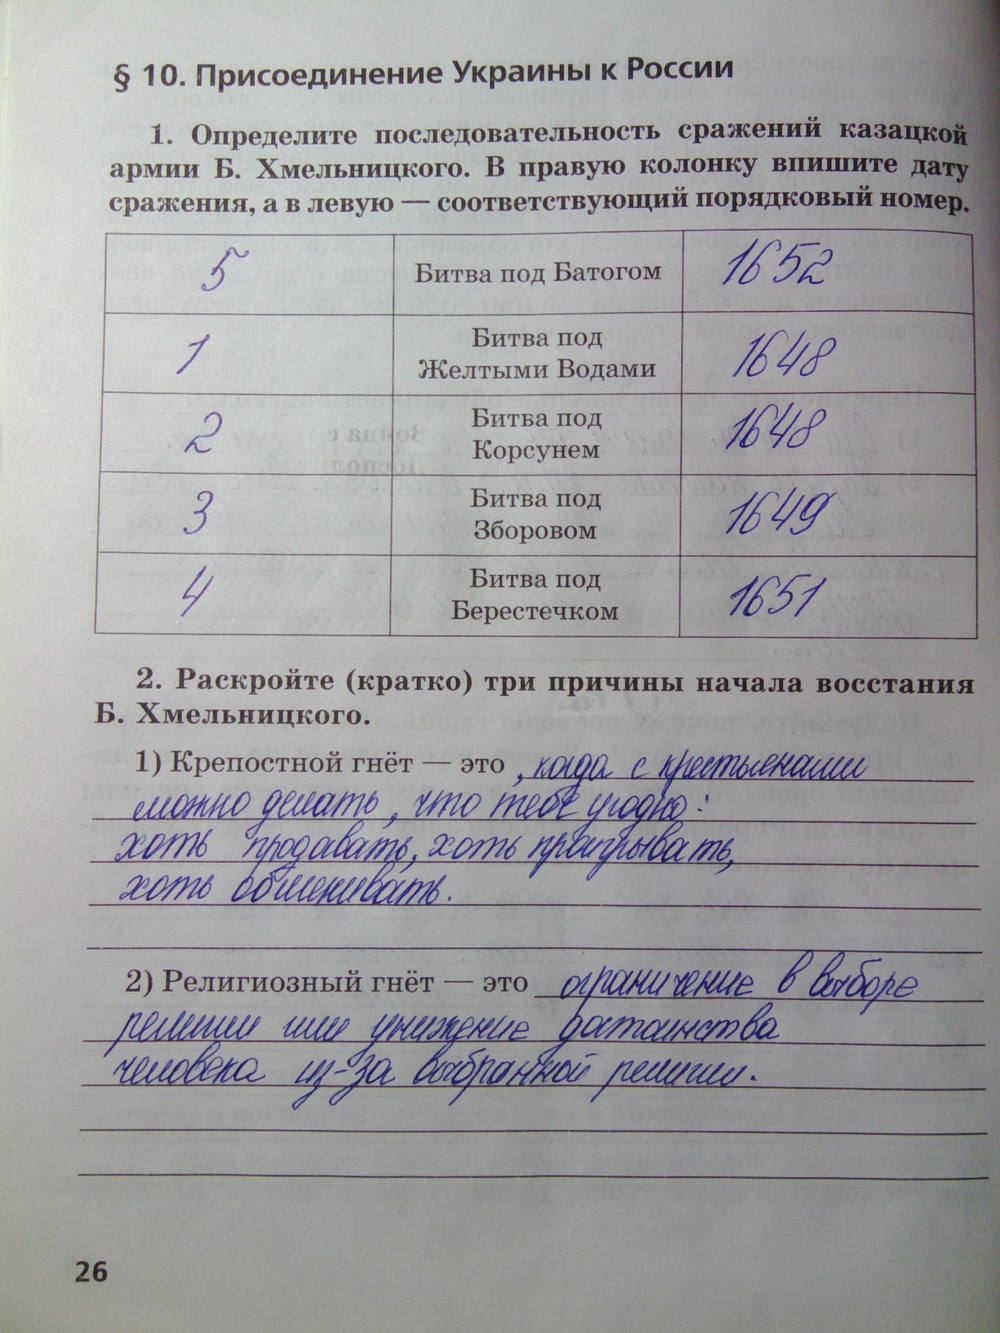 § 10. Присоединение Украины к России
1. Определите последовательность сражений казацкой
армии Б. Хмельницкого. В правую колонку впишите дату
сражения, а в левую — соответствующий порядковый номер.
5 Битва под Батогом 1652
1 Битва под
Желтыми Водами 1648
2 Битва под
Корсунем 1648
3 Битва под
Зборовом 1649
4 Битва под
Берестечком 1651
2. Раскройте (кратко) три причины начала восстания
Б. Хмельницкого.
1) Крепостной гнёт — это , когда с крестьянами
можно делать, что тебе угодно:
хоть продавать, хоть проигрывать,
хоть обменивать.
2) Религиозный гнёт — это ограничение в выборе
религии или унижение достоинства
человека из-за выбранной религии.
26